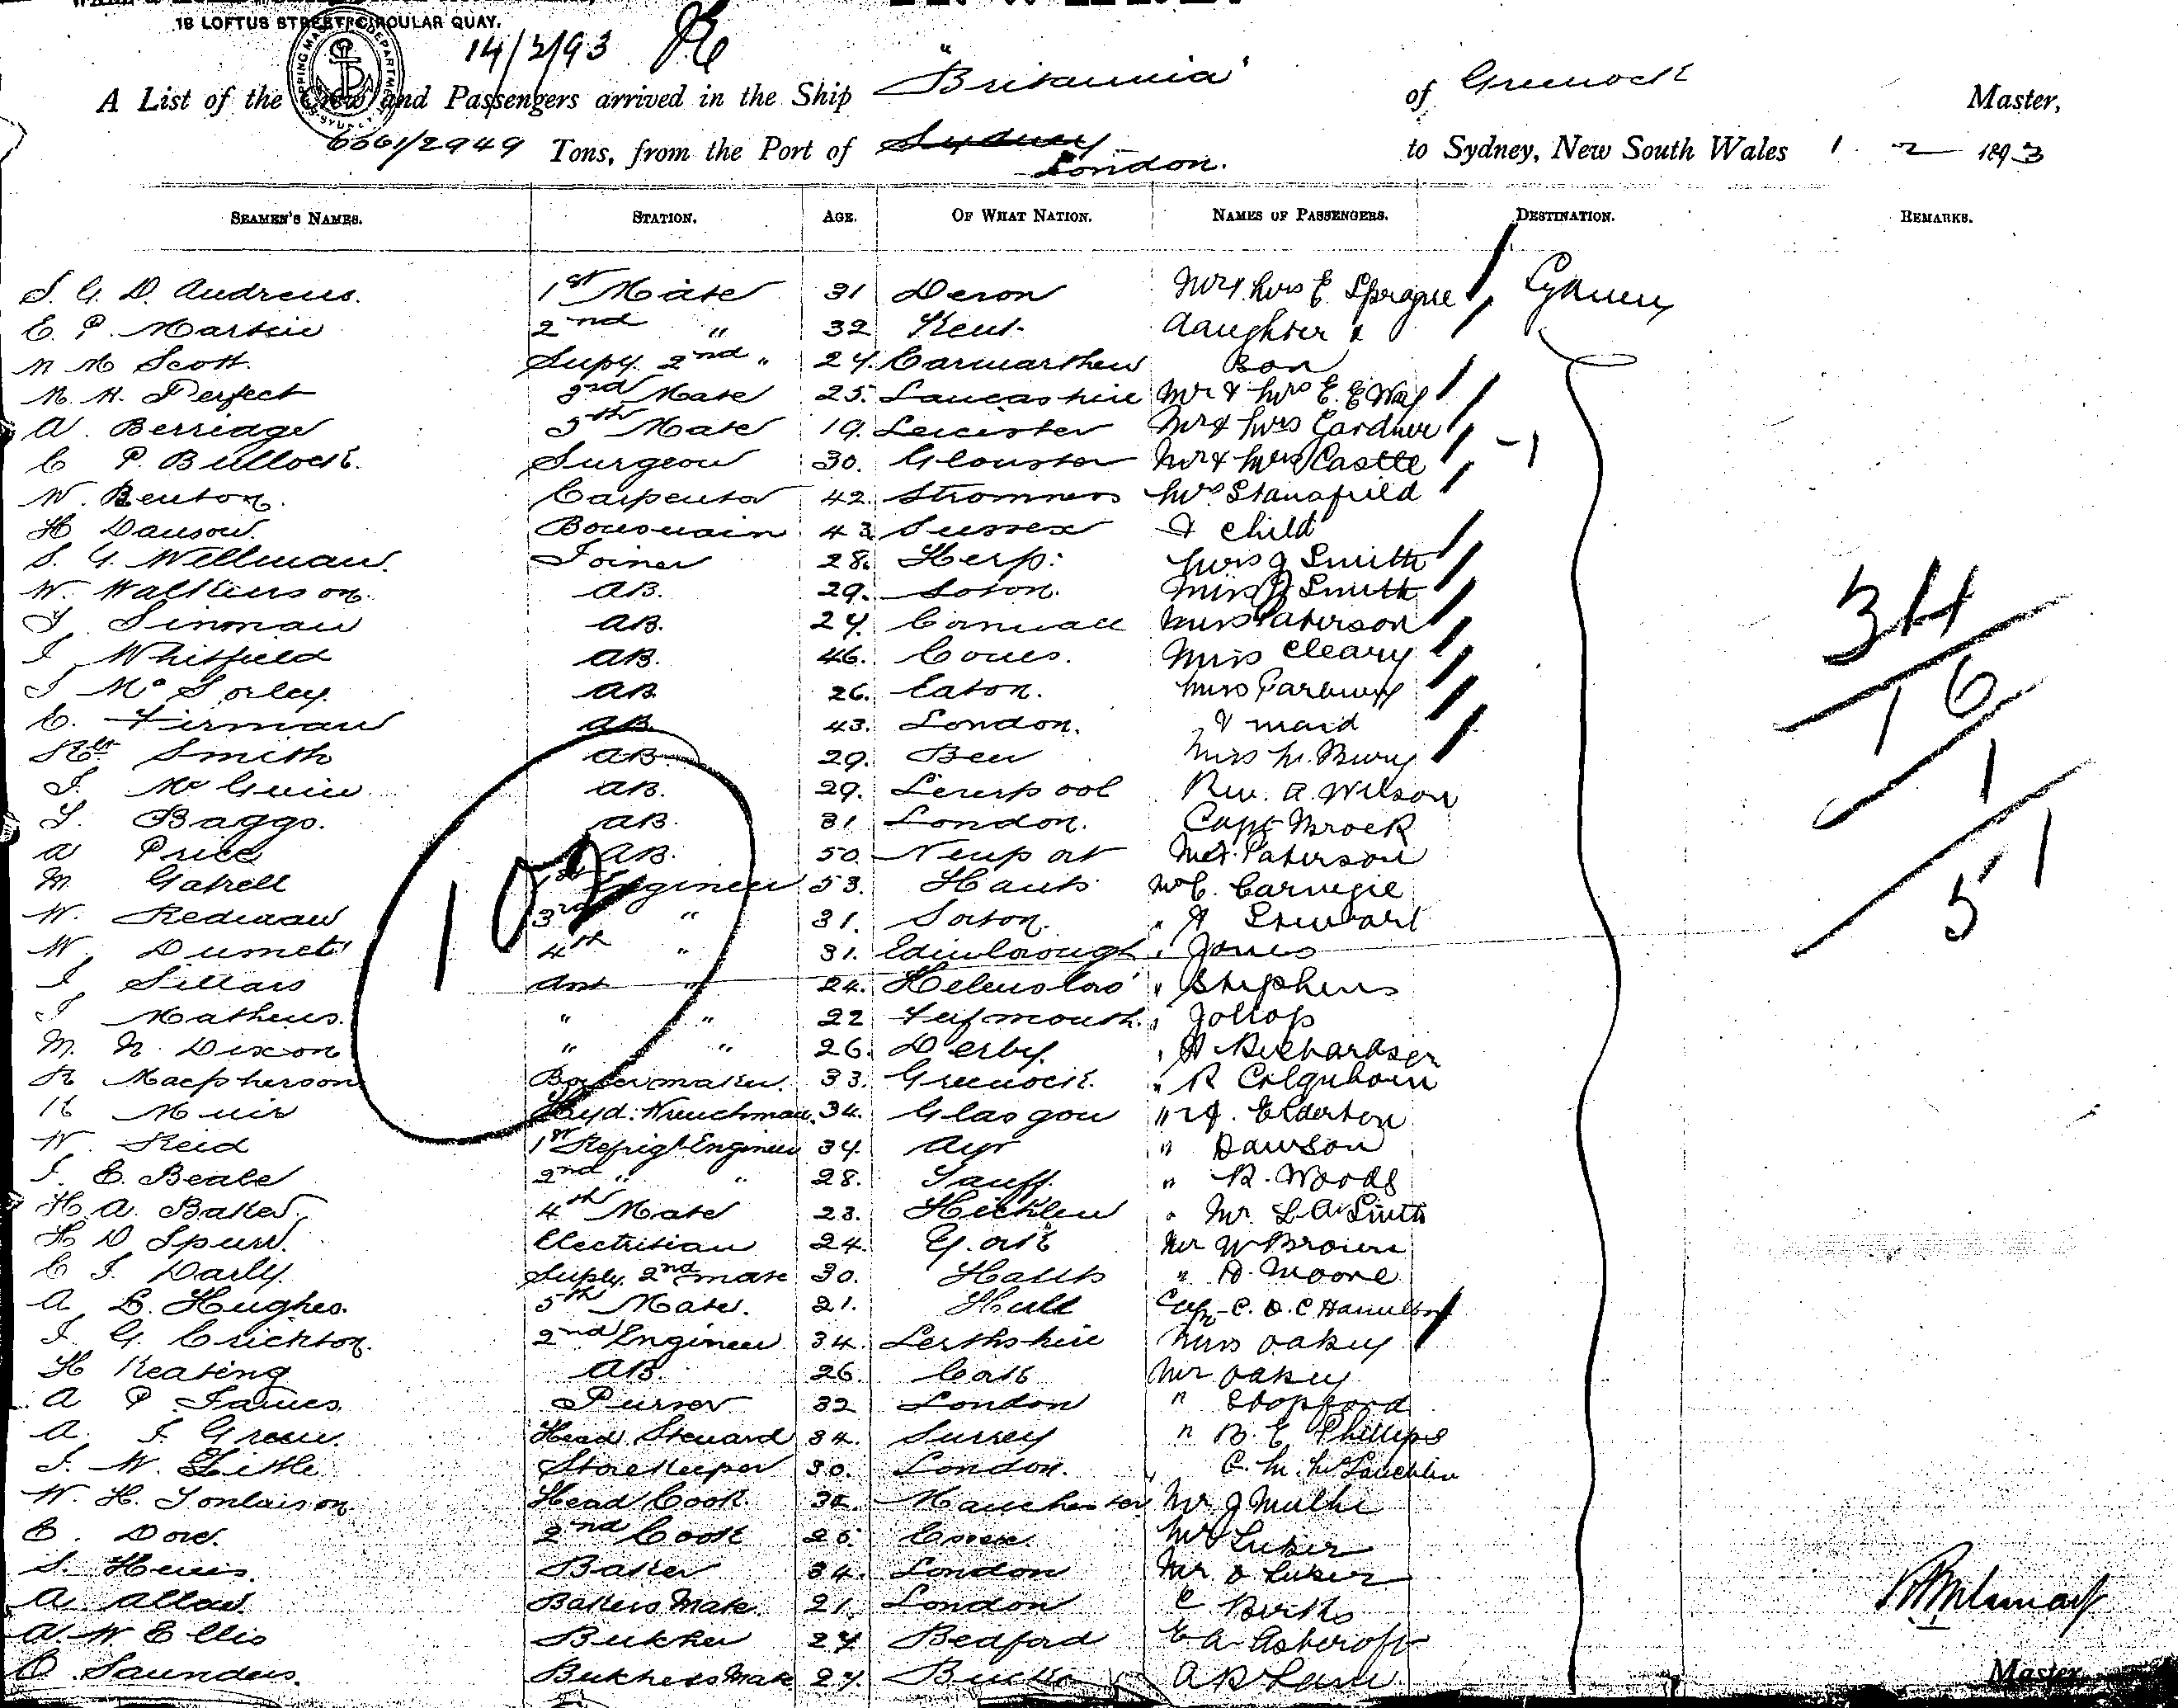 18 LOFTUS STREET, CIRCULAR QUAY.
14/2/93
A List of the Crew and Passengers arrived in the Ship "Britannia" of Greenock Master,
Tons, from the Port of Sydney London. to Sydney, New South Wales 1 2 1893
SEAMEN'S NAMES. STATION. AGE. OF WHAT NATION. NAMES OF PASSENGERS. DESTINATION. REMARKS.
S. G. D. Andrews. 1st Mate 31 Devon Mr & Mrs E. Sprague Sydney
E. P. Martin 2nd " 32 Kent daughter &
Scott. Supy. 2nd " 24. Carmarthen Son
H. Perfect 3rd Mate 25. Lancashire Mr & Mrs E. E Way
A. Berridge 5th Mate 19. Leicester Mr & Mrs Gardner
C P. Bullock. Surgeon 30. Glouster Mr & Mrs Castle
W. Renton. Carpenter 42. Stromness Mrs Stansfield
H Dawson. Boatswain 43 Sussex & child
S. G. Wellman. Joiner 28. Mrs J Smith
W. Watkinson. AB. 29. Soton. Miss Smith
AB. 24. Cornwall Miss Paterson
J Whitfield AB. 46. Cowes. Miss Cleary
J McSorley. AB 26. Eaton. Miss Parbury
E. Firman AB. 43. London. & maid
Robt Smith AB. 29. Miss M. Bury
J. McGuire AB. 29. Liverpool Rev. A. Wilson
Baggs. AB. 31 London. Capt Brock
A Price AB. 50. Newport Paterson
M. Gatrell 1st Engineer 53. Hants Carnegie
W. Redman 3rd " 31. Soton. " A Stewart
W. 4th " 31. Edinborough " Jones
J Sillars Asst " 24. " Stephens
J Mathews. " " 22 " Jollop
M. N. Dixon " " 26. Derby. " A Richardson
R Macpherson Boilermaker. 33. Greenock. " R Colquhoun
Muir Hyd. Wrenchman. 34. Glasgow " Elderton
W. Reid 1st Refrigt Engineer 34. Ayr " Dawson
J. E. Beale 2nd " " 28. " R. Woods
H. A. Baker. 4th Mate 23. " Mr. L A Smith
H D Spurr. Electritian 24. York Mr W Brown
C J. Darly. Suply. 2nd mate 30. Hants " A. Moore
A. L. Hughes. 5th Mate. 21. Hull Capt C. D. C Hamilton
J. G. Crichton. 2nd Engineer 34. Perthshire Miss Oakey
H Keating AB. 26. Cork Mr Oakey
A P James Purser 32 London " Stopford
A. J. Green. Head Steward 34. Surrey " B. E Phillips
J. W. Little Storekeeper 30. London. C. M. McLauchlin
W. H. Tomlinson. Head Cook. Manchester Mr J
E. Dove. 2nd Cook Essex. Mrs Luker
S. Baker 34. London Mr Luker
A. Allan. Bakers Mate. 21. London C Birks
A. W Ellis Butcher 24 Bedford E A Ashcroft
Saunders. Butchers Mate 24. Bucks A B Lane
102
34
16
1
51
Master.